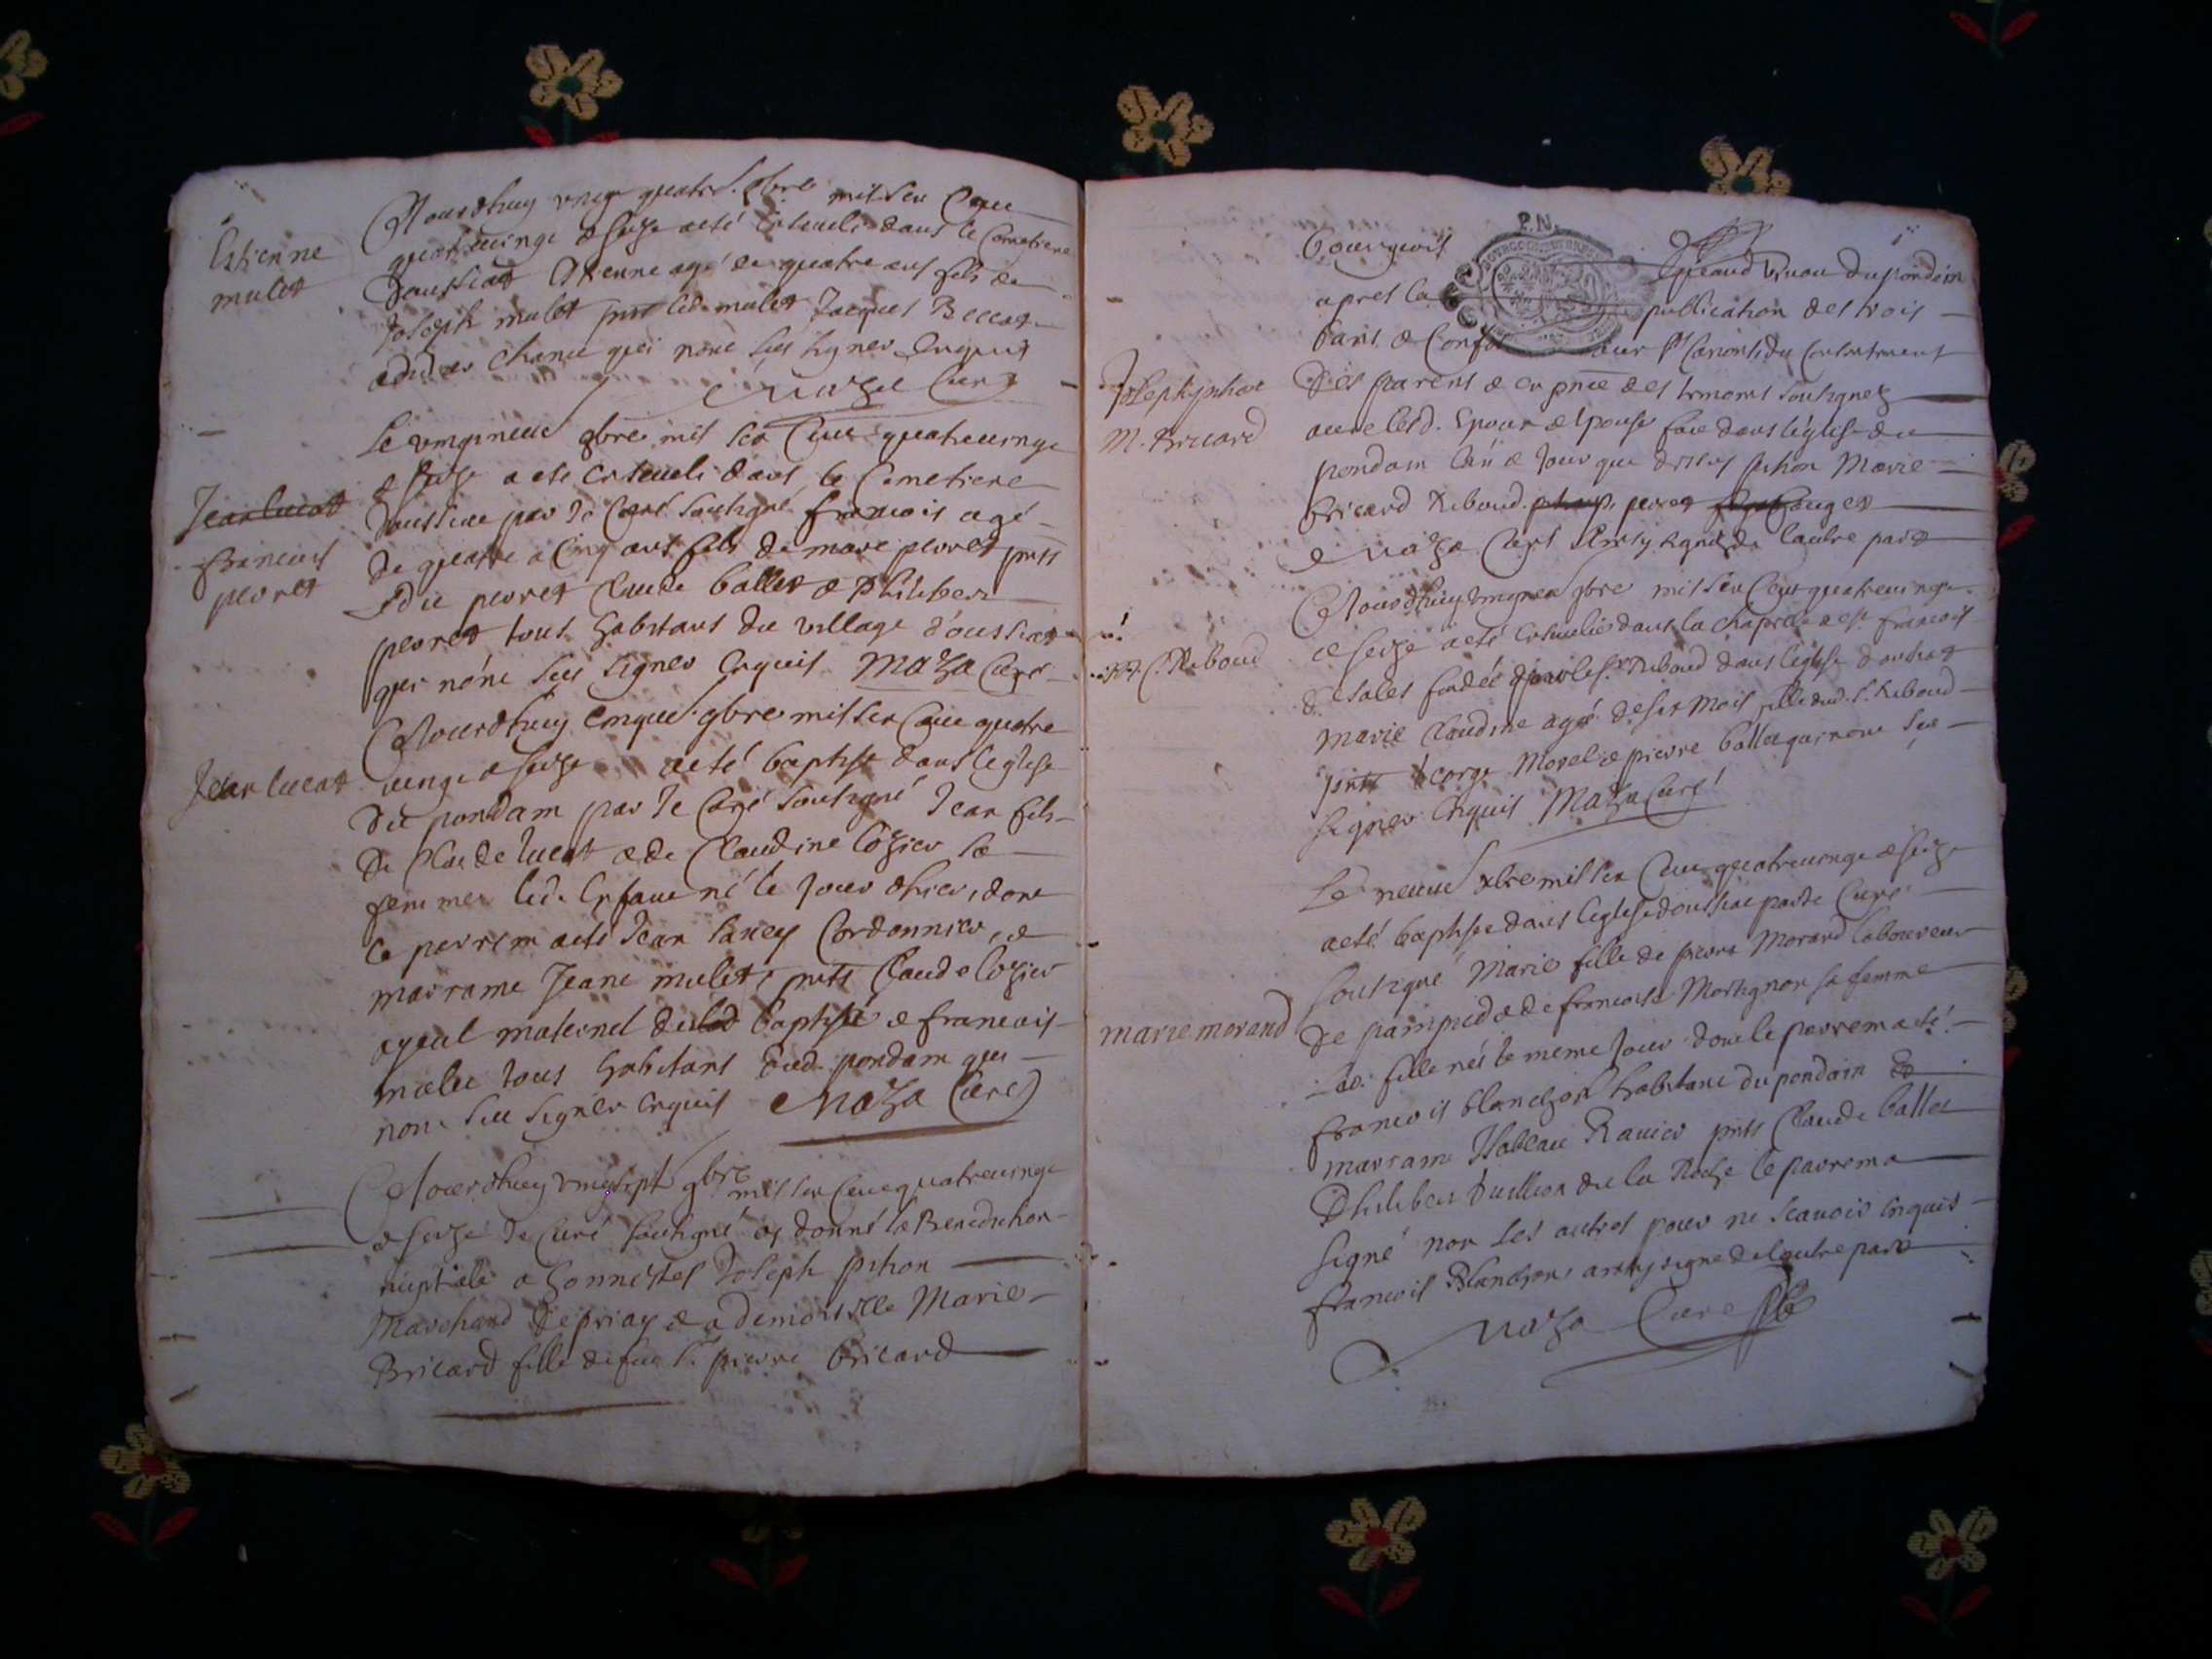 Estienne
mulet
Aiourdhuy vingt quatre 9bre mil six Cens
quatreuingt & seize a eté enseueli dans le Cemetiere
doussiat Etienne agé de quatre ans fils de
Joseph mulet pnt led. mulet Jacques
qui nont sceu signer enquis
Maza Curé
Le vingtneuf 9bre mil six Cens quatreuingt
& seize a eté enseueli dans le Cemetiere
doussiat par Je Curé soussigné francois agé
Jean lucat
francois
peyret
de quatre a cinq ans fils de marc peyret pnts
led peyret Claude ballet & Philibert
peyret tous habitans du village d'oussiat
qui nont sceu signer enquis Maza Curé
Jean lucat
Aiourdhuy cinquie. 9bre mil six Cens quatre
uingt & seize a eté baptisé dans leglise
du pondain par Je Curé soussigné Jean fils
de Claude lucat & de Claudine lozier sa
femme led. Enfant né le jour dhier, dont
le parrein a eté Jean Cordonnier, &
marraine Jeane mulet, pnts Claude lozier
ayeul maternel dud baptisé & francois
tous habitans dud. pondain qui
nont sceu signer enquis Maza Curé
Aiourdhuy vingtsept 9bre mil six Cens quatreuingt
& seize Je Curé soussigné ay donné la Benediction
nuptiale a honnestes Joseph pithon
Marchand de priay & a demoiselle Marie
Bricard fille de feu Sr. pierre bricard
P.N.
bourgeois
du pondain
apres la publication des trois
bans & Canons, du Consentement
Joseph pithon
M. Bricard
des parens & en pnce des temoins soussignez
auec lesd. Epoux & epouse fait dans léglise du
pondain lan & jour que dessus pithon Marie
bricard Riboud peyret
& Maza Curé signé de lautre part
Aiourdhuy 9bre mil six Cens quatreuingt
C. Riboud
& seize a eté enseuelie dans la chapelle de st. francois
de sales fondée par le Sr. Riboud dans leglise doussiat
Marie Claudine agée de six mois fille dud. Sr. Riboud
pnts george Morel & pierre ballet qui nont sceu
signer enquis Maza Curé
Le neuuie. Xbre mil six Cens quatreuingt & seize
a eté baptisée dans leglise doussiat par Je Curé
soussigné Marie fille de pierre Morand laboureur
marie morand
de & de francoise Mortignon sa femme
lad. fille née le meme jour dont le parrein a eté
francois blanchon habitant du pondain &
marraine Ysabeau Rauier pnts Claude ballet
Philibert de la Roche le parrein a
signé non les autres pour ne scauoir enquis
francois Blanchon, signe de lautre part
Maza Curé